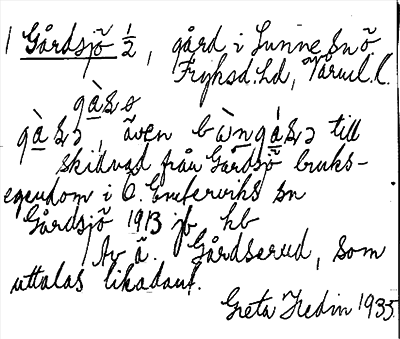 1 Gårdsjö ½, gård i Sunne sn ö.
Fryksd. hd, Värml. l.
även till
skillnad från Gårdsjö bruks-
egendom i Ö. Emterviks sn
Gårdsjö 1913 jb hb
Av ä. Gårdserud, som
uttalas likadant.
Greta Hedin 1935